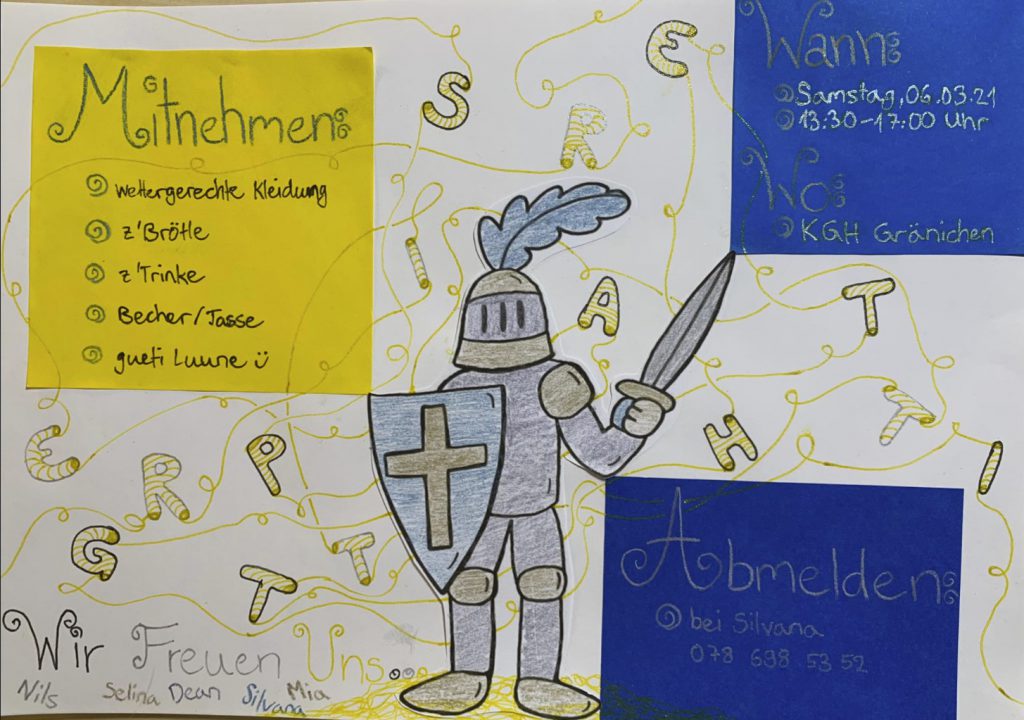 Mitnehmen:
wettergerechte Kleidung
z'Brötle
z'Trinke
Becher/Tasse
gueti Luune ü
Wann:
Samstag, 06.03.21
13:30-17:00 Uhr
Wo:
KGH Gränichen
S R E
I A T
E R P H T I
G T T
Abmelden:
bei Silvana
078 698 53 52
Wir Freuen Uns...
Nils Selina Dean Silvana Mia